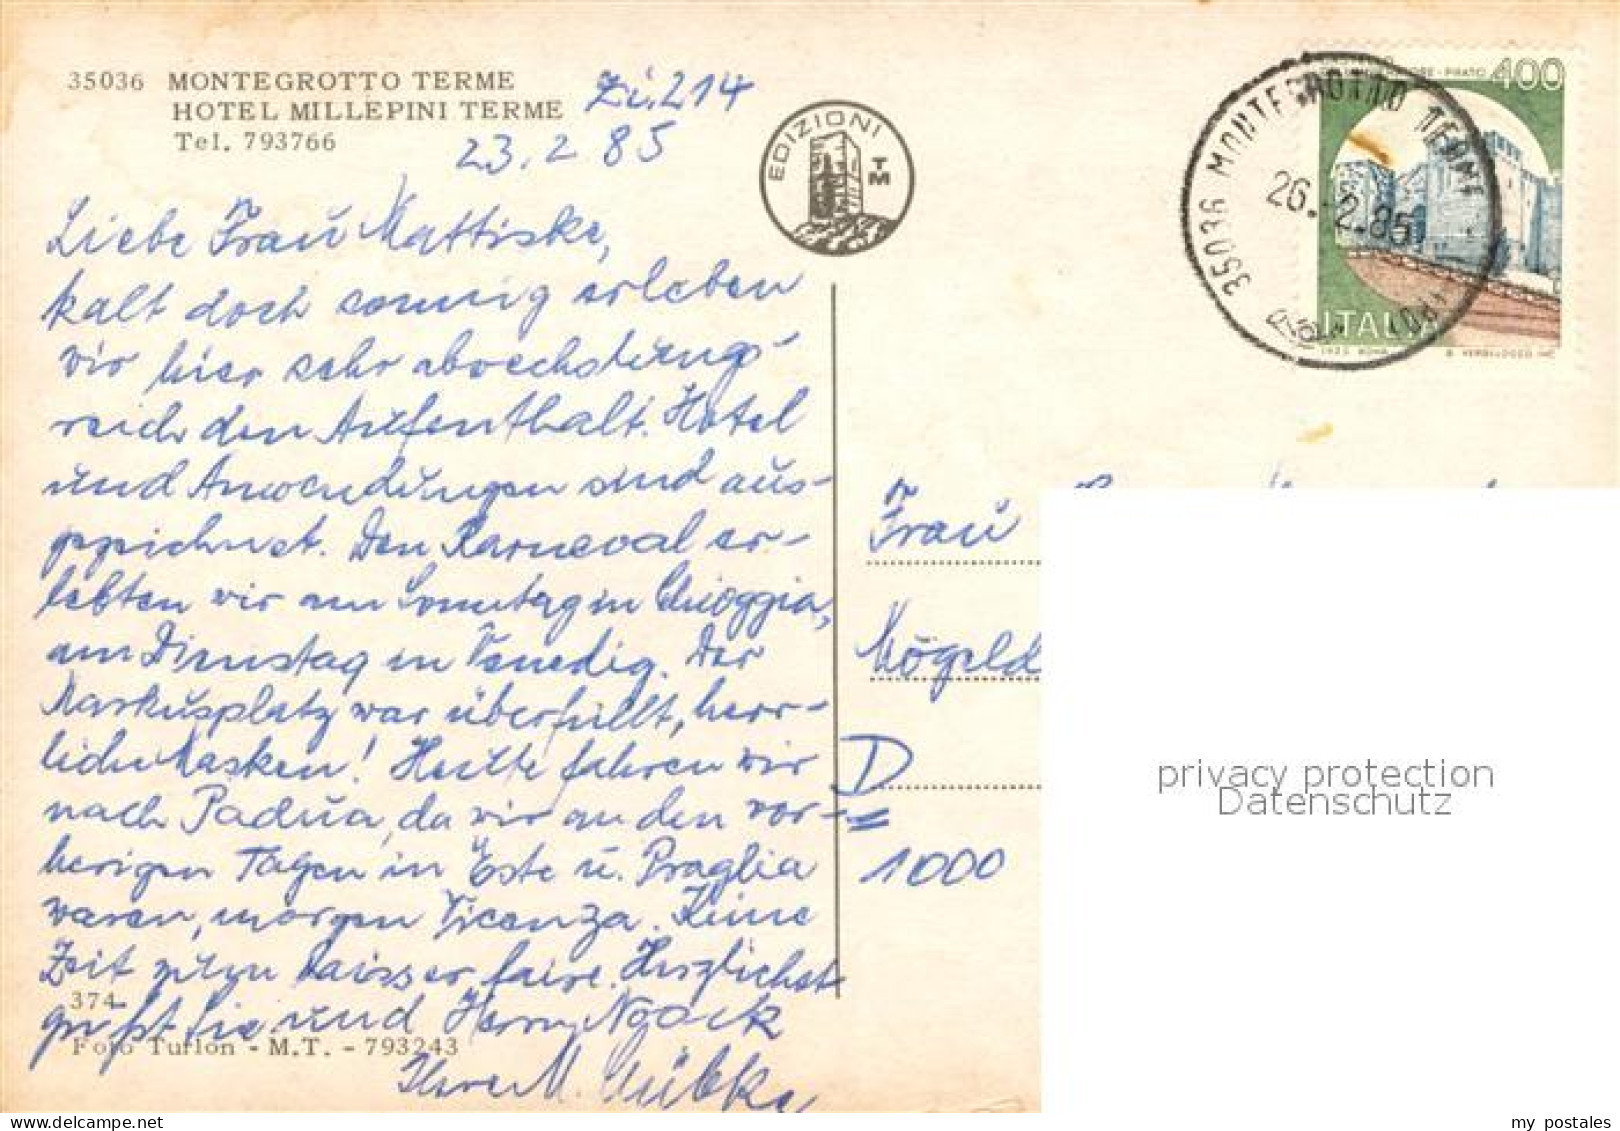 35036 MONTEGROTTO TERME
HOTEL MILLEPINI TERME
Tel. 793766
Zi. 214
23.2 85
EDIZIONI
TM
35036 MONTEGROTTO TERME
26.-2.85
PRATO 400
ITALIA
Liebe Frau Mattiske,
kalt doch sonnig erleben
wir hier sehr abwechslungs-
reich den Aufenthalt. Hotel
und Anwendungen sind aus-
gezeichnet. Den Karneval er-
lebten wir am Sonntag in Chioggia,
am Dienstag in Venedig. Der
Markusplatz war überfüllt, herr-
liche Masken! Heute fahren wir
nach Padua, da wir an den vor-
herigen Tagen in Este u. Praglia
waren, morgen Vicenza. Keine
Zeit zum laisser faire. Herzlichst
grüßt Sie und Herrn
Ihre M.
374
Foto Turlon - M.T. - 793243
Frau
D
1000
privacy protection
Datenschutz
my postales